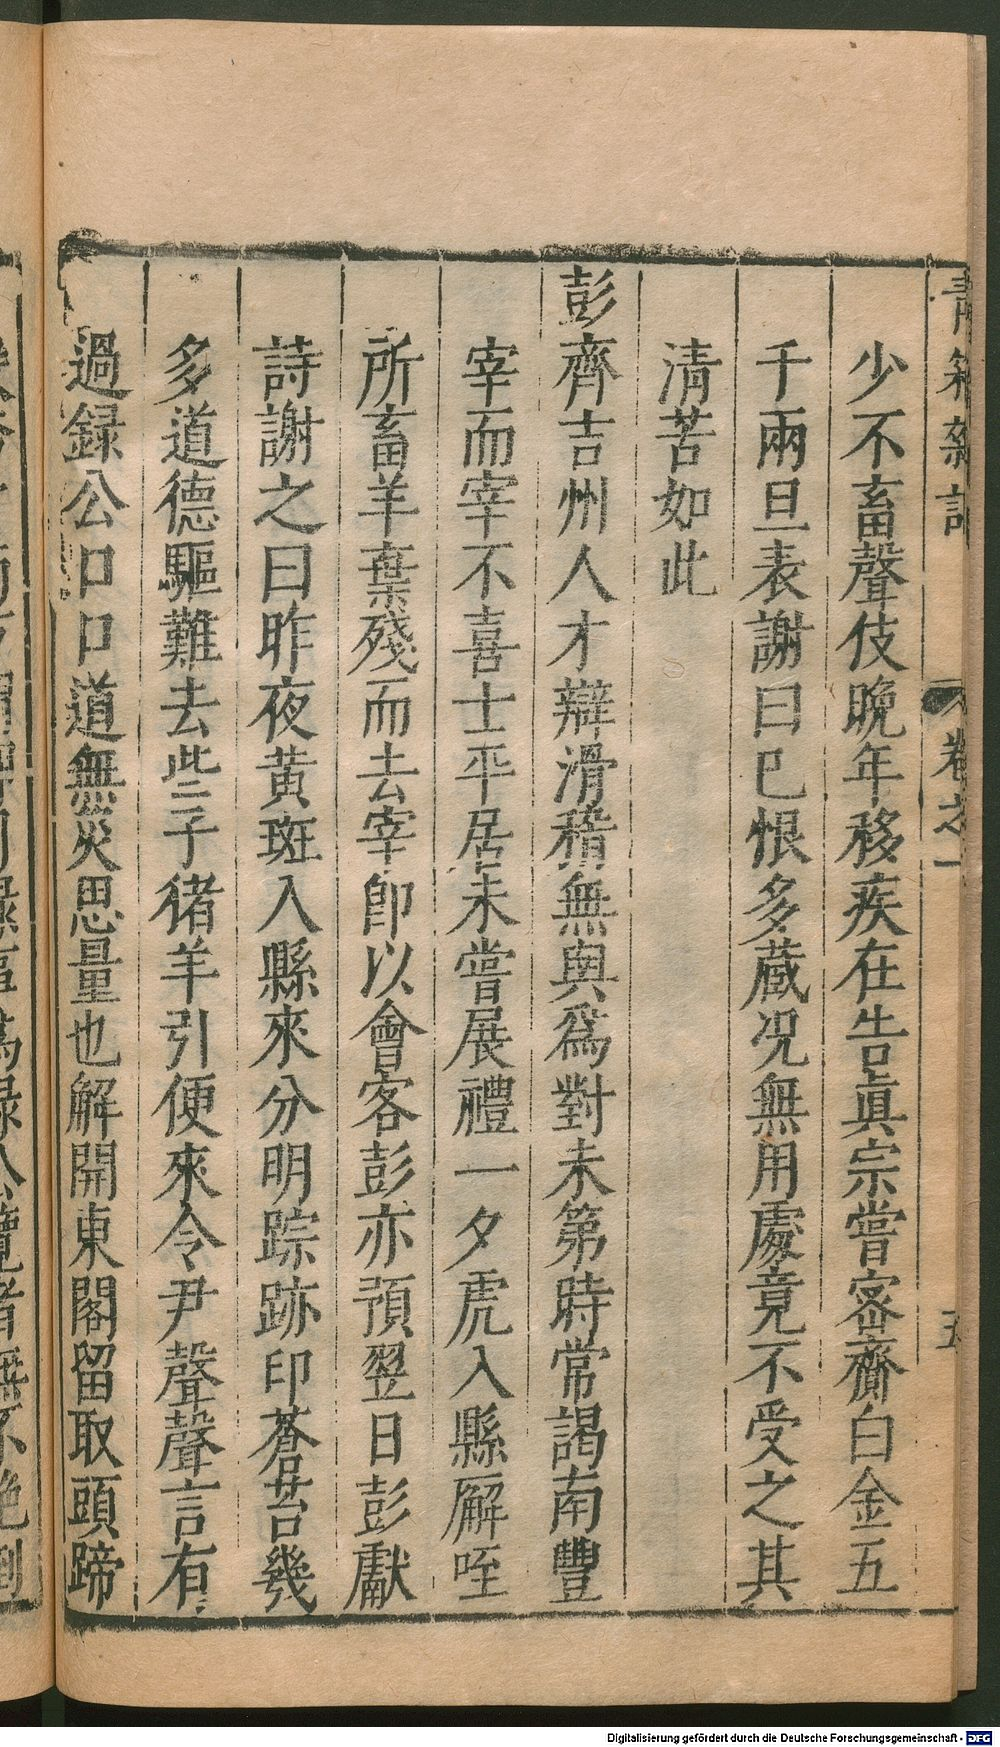 青箱雜記 卷之一 五
少不畜聲伎晚年移疾在告眞宗嘗密齎白金五
千兩旦表謝曰已恨多蔵况無用處竟不受之其
清苦如此
彭齊吉州人才辯滑稽無與爲對未第時常謁南豐
宰而宰不喜士平居未嘗展禮一夕虎入縣廨咥
所畜羊棄殘而去宰卽以會客彭亦預翌日彭獻
詩謝之曰昨夜黄斑入縣來分明踪跡印蒼苔幾
多道德驅難去些子猪羊引便來令尹聲聲言有
過録公口口道無災思量也解開東閣留取頭蹄
Digitalisierung gefördert durch die Deutsche Forschungsgemeinschaft - DFG